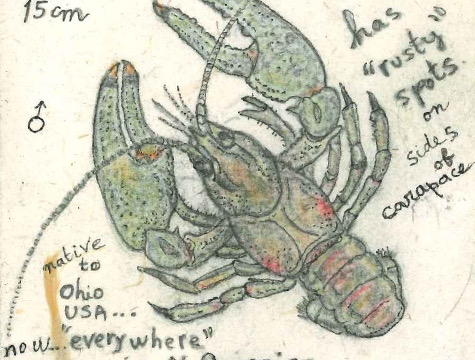 15cm
♂
has
"rusty"
spots
on
sides
of
carapace
native
to
Ohio
USA...
now... "everywhere"